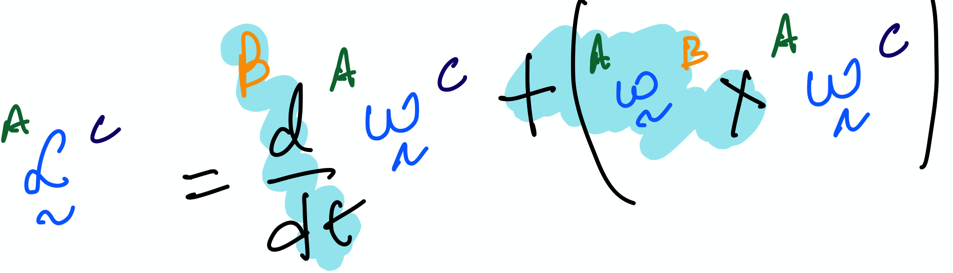 $^{A}\underset{\sim}{\mathcal{L}}^{C} = \frac{^{B}d}{dt} \, ^{A}\underset{\sim}{\omega}^{C} + \left( ^{A}\underset{\sim}{\omega}^{B} \times \, ^{A}\underset{\sim}{\omega}^{C} \right)$